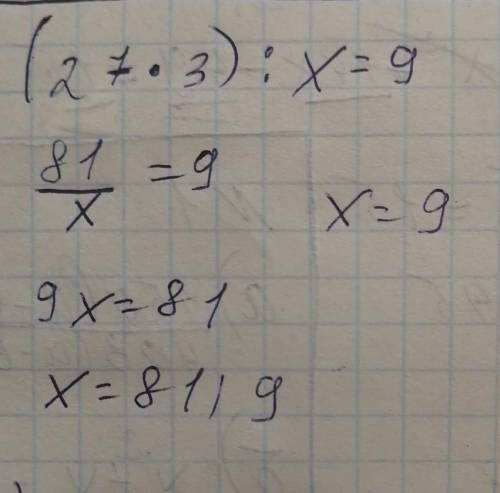 (27·3):x=9
81/x =9
x=9
9x=81
x=81/9